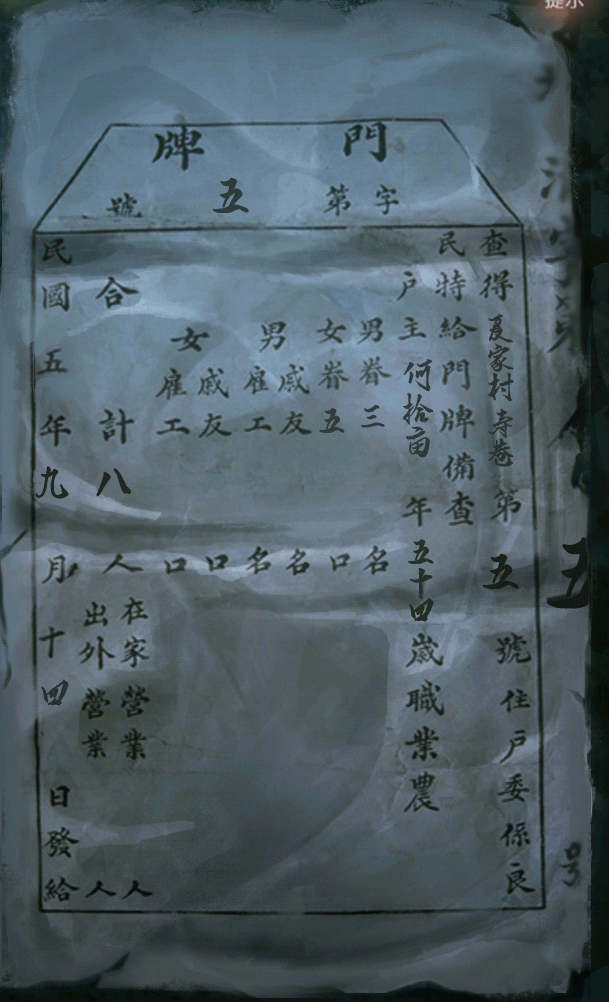 提示
門牌
字第五號
查得夏家村寺巷第五號住戶委係良
民特給門牌備查
戶主何拾亩年五十四歲職業農
男眷三名
女眷五口
男
戚友名
雇工名
女
戚友口
雇工口
合計八人
在家營業人
出外營業人
民國五年九月十四日發給
五
号